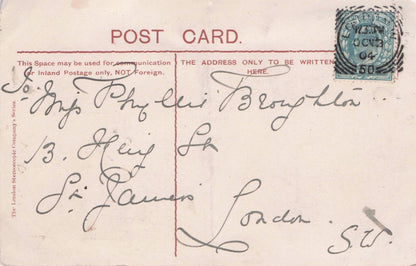 POST CARD.
This Space may be used for communication
or Inland Postage only, NOT Foreign.
THE ADDRESS ONLY TO BE WRITTEN
HERE.
OC 3
04
50
To
Miss Phyllis Broughton
13. King St
St James
London
S.W.
The London Stereoscopic Company's Series